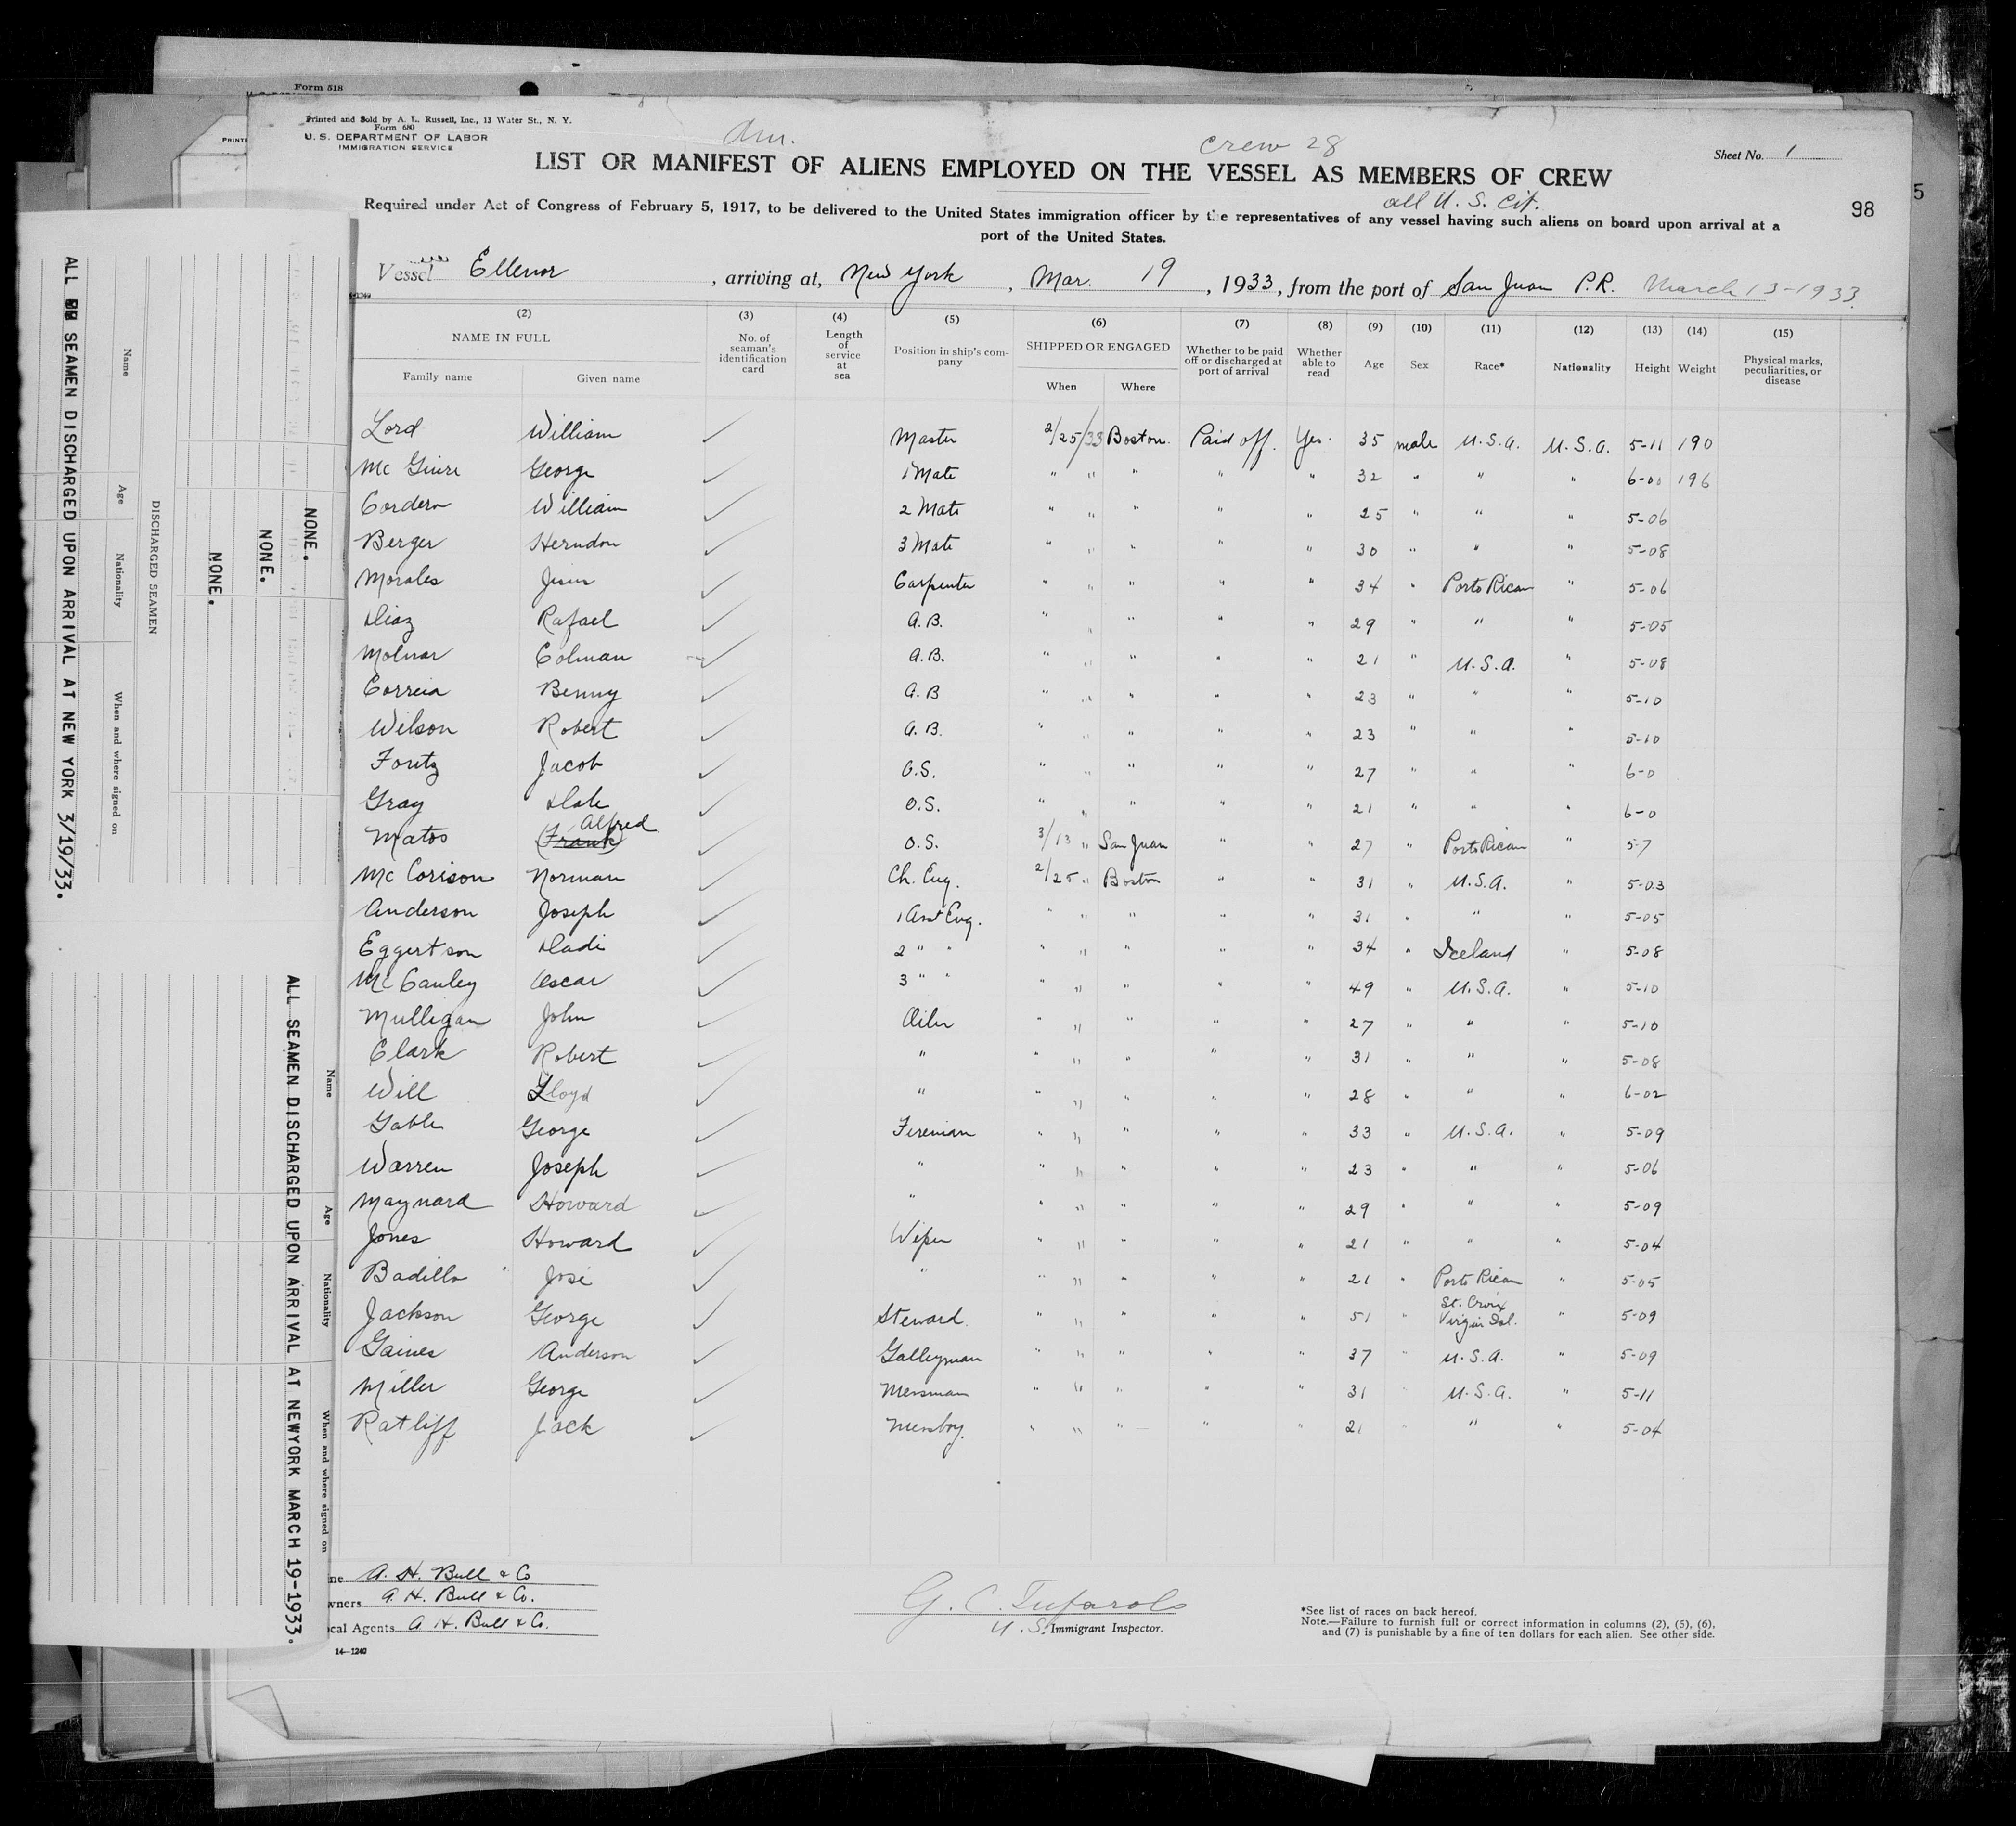 Form 518
Printed and Sold by A. L. Russell, Inc., 13 Water St., N. Y.
Form 680
U. S. DEPARTMENT OF LABOR
IMMIGRATION SERVICE
Am.
crew 28
Sheet No. 1
LIST OR MANIFEST OF ALIENS EMPLOYED ON THE VESSEL AS MEMBERS OF CREW
all U. S. Cit.
98
5
Required under Act of Congress of February 5, 1917, to be delivered to the United States immigration officer by the representatives of any vessel having such aliens on board upon arrival at a
port of the United States.
Vessel Ellenor, arriving at, New York, Mar. 19, 1933, from the port of San Juan P.R. March 13-1933
(2) (3) (4) (5) (6) (7) (8) (9) (10) (11) (12) (13) (14) (15)
NAME IN FULL Family name Given name No. of seaman's identification card Length of service at sea Position in ship's company SHIPPED OR ENGAGED When Where Whether to be paid off or discharged at port of arrival Whether able to read Age Sex Race* Nationality Height Weight Physical marks, peculiarities, or disease
Lord William ✓ Master 2/25/33 Boston. Paid off. Yes. 35 male U.S.A. U.S.A. 5-11 190
Mc Guire George ✓ 1 Mate " " " " " 32 " " " 6-00 196
Cordero William ✓ 2 Mate " " " " " 25 " " " 5-06
Berger Herndon ✓ 3 Mate " " " " " 30 " " " 5-08
Morales Jesus ✓ Carpenter " " " " " 34 " Porto Rican " 5-06
Diaz Rafael ✓ A.B. " " " " " 29 " " " 5-05
Molnar Colman ✓ A.B. " " " " " 21 " U.S.A. " 5-08
Correia Benny ✓ A.B " " " " " 23 " " " 5-10
Wilson Robert ✓ A.B. " " " " " 23 " " " 5-10
Foutz Jacob ✓ O.S. " " " " " 27 " " " 6-0
Gray Dale ✓ O.S. " " " " " 21 " " " 6-0
Matos (Frank) Alfred ✓ O.S. 3/13 " San Juan " " 27 " Porto Rican " 5-7
Mc Corison Norman ✓ Ch. Eng. 2/25 " Boston " " 31 " U.S.A. " 5-03
Anderson Joseph ✓ 1 Asst Eng. " " " " " 31 " " " 5-05
Eggertson Dadi ✓ 2 " " " " " " " 34 " Iceland " 5-08
Mc Cauley Oscar ✓ 3 " " " " " " " 49 " U.S.A. " 5-10
Mulligan John ✓ Oiler " " " " " 27 " " " 5-10
Clark Robert ✓ " " " " " " 31 " " " 5-08
Will Lloyd ✓ " " " " " " 28 " " " 6-02
Gable George ✓ Fireman " " " " " 33 " U.S.A. " 5-09
Warren Joseph ✓ " " " " " " 23 " " " 5-06
Maynard Howard ✓ " " " " " " 29 " " " 5-09
Jones Howard ✓ Wiper " " " " " 21 " " " 5-04
Badillo José ✓ " " " " " " 21 " Porto Rican " 5-05
Jackson George ✓ Steward. " " " " " 51 " St. Croix Virgin Isl. " 5-09
Gaines Anderson ✓ Galleyman " " " " " 37 " U.S.A. " 5-09
Miller George ✓ Messman " " " " " 31 " U.S.A. " 5-11
Ratliff Jack ✓ Messboy. " " " " " 21 " " " 5-04
ne A. H. Bull & Co
wners A. H. Bull & Co.
ocal Agents A. H. Bull & Co.
14—1240
G. C. Tufarolo
U. S. Immigrant Inspector.
*See list of races on back hereof.
Note.—Failure to furnish full or correct information in columns (2), (5), (6),
and (7) is punishable by a fine of ten dollars for each alien. See other side.
ALL SEAMEN DISCHARGED UPON ARRIVAL AT NEW YORK 3/19/33.
Name Age Nationality When and where signed on
DISCHARGED SEAMEN
NONE.
NONE.
NONE.
ALL SEAMEN DISCHARGED UPON ARRIVAL AT NEWYORK MARCH 19-1933.
Name Age Nationality When and where signed on